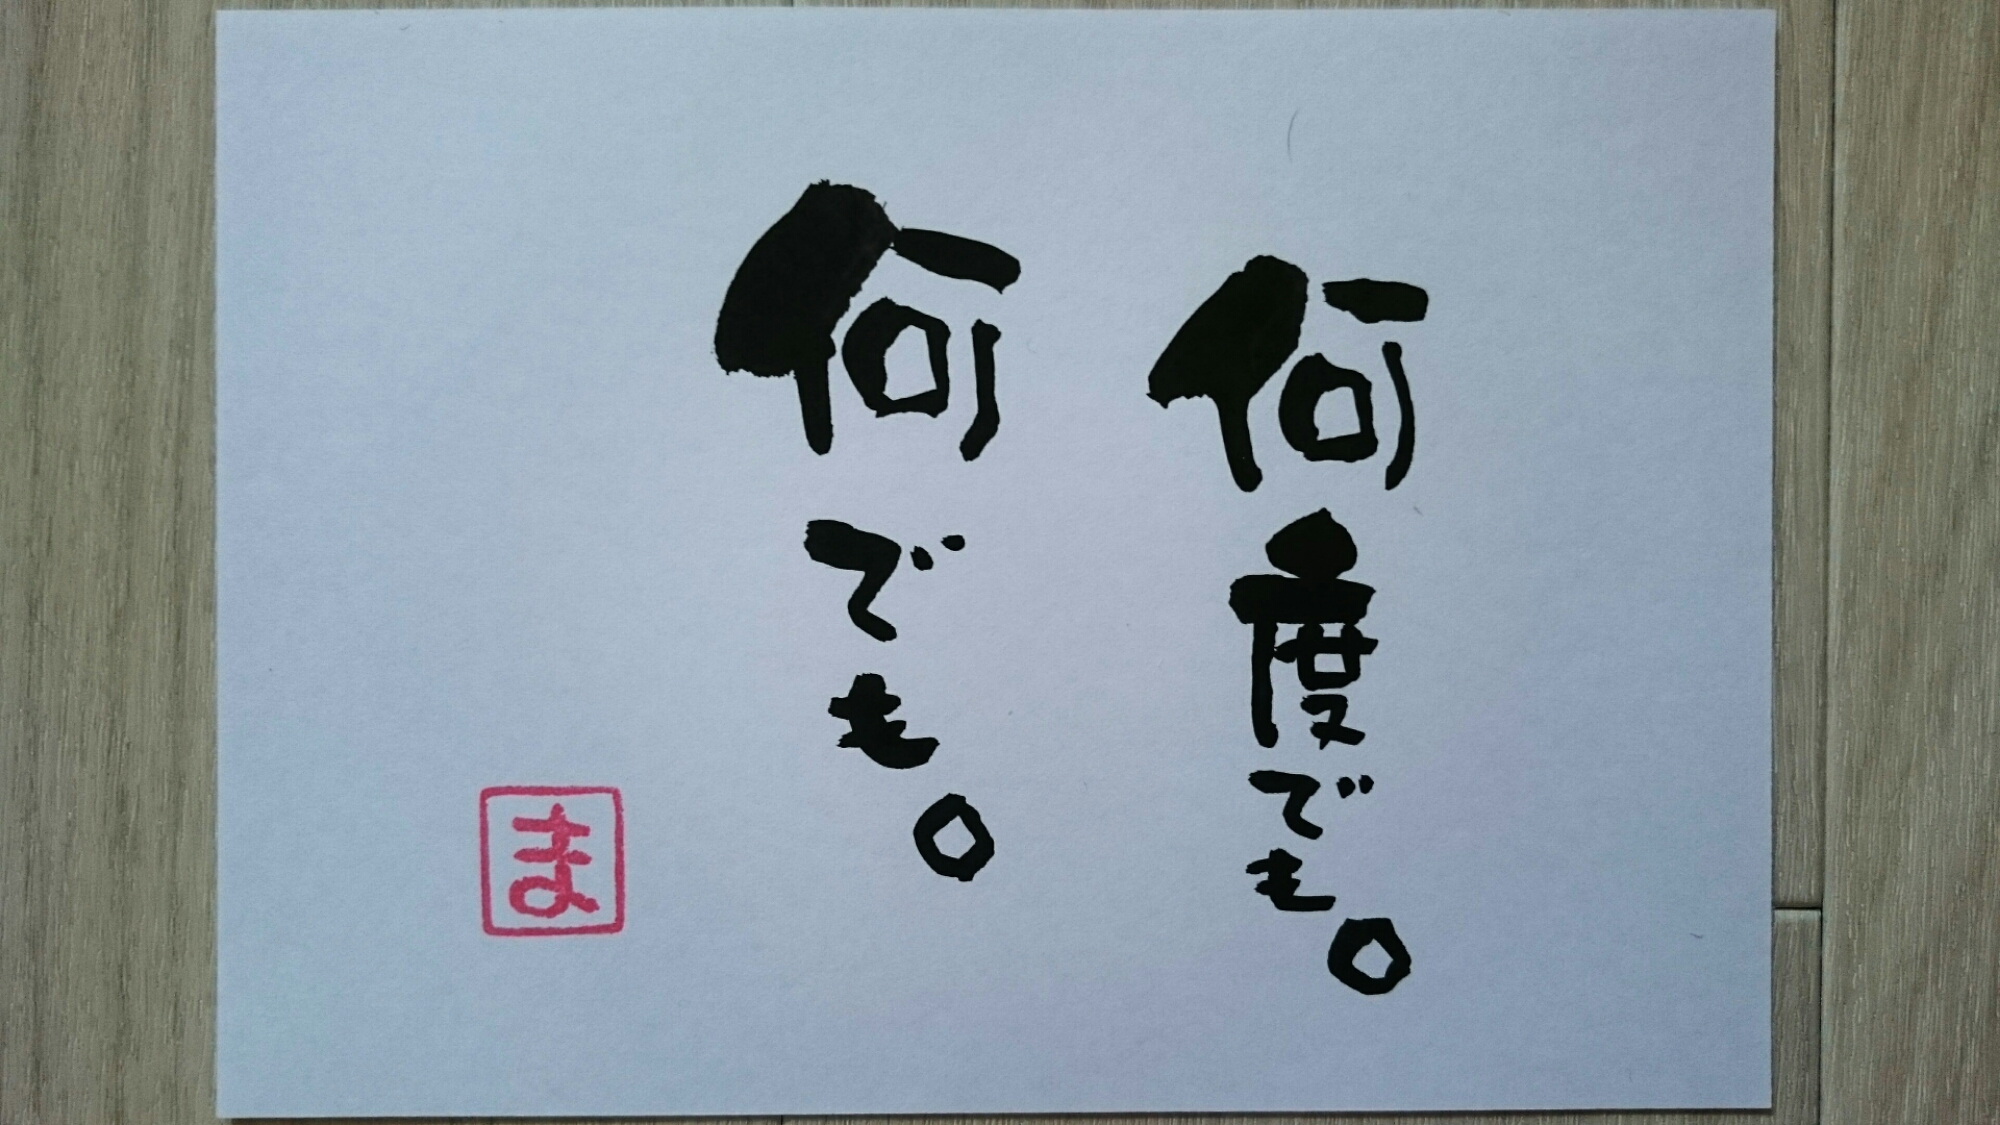 何度でも。
何でも。
ま